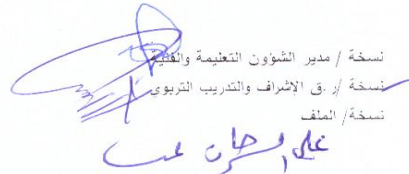 نسخة / مدير الشؤون التعليمة والفنية
نسخة / ر.ق الإشراف والتدريب التربوي
نسخة/ الملف